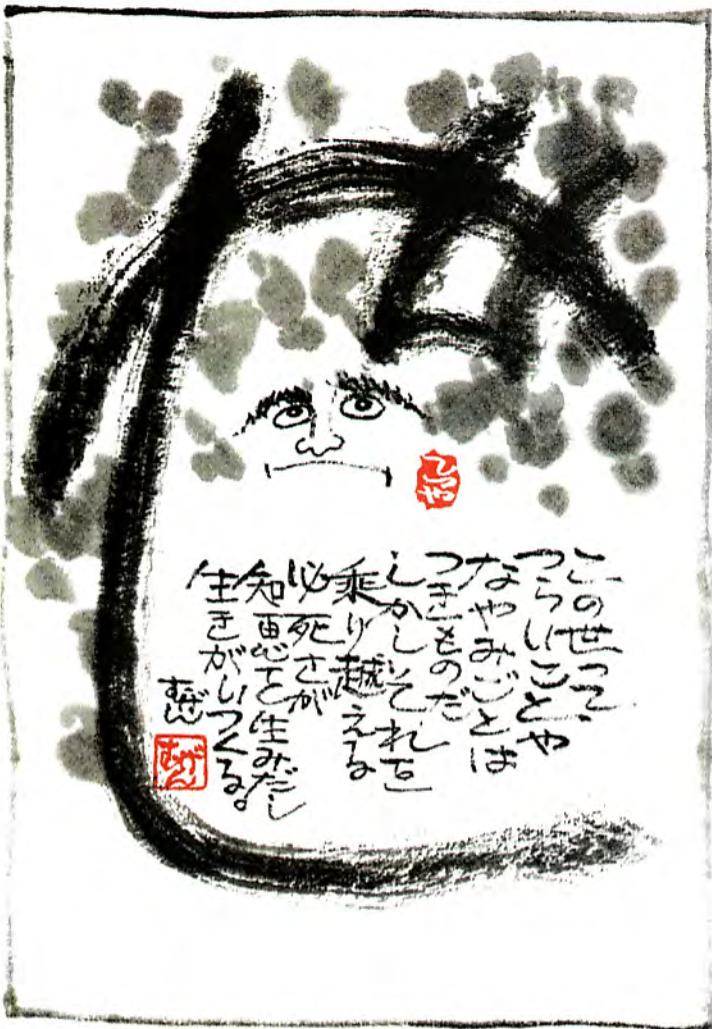 この世って、
つらいことや
なやみごとは
つきものだ
しかしそれを
乗り越える
必死さが
知恵を生みだし
生きがいつくる。
むげん
むげん
てつや